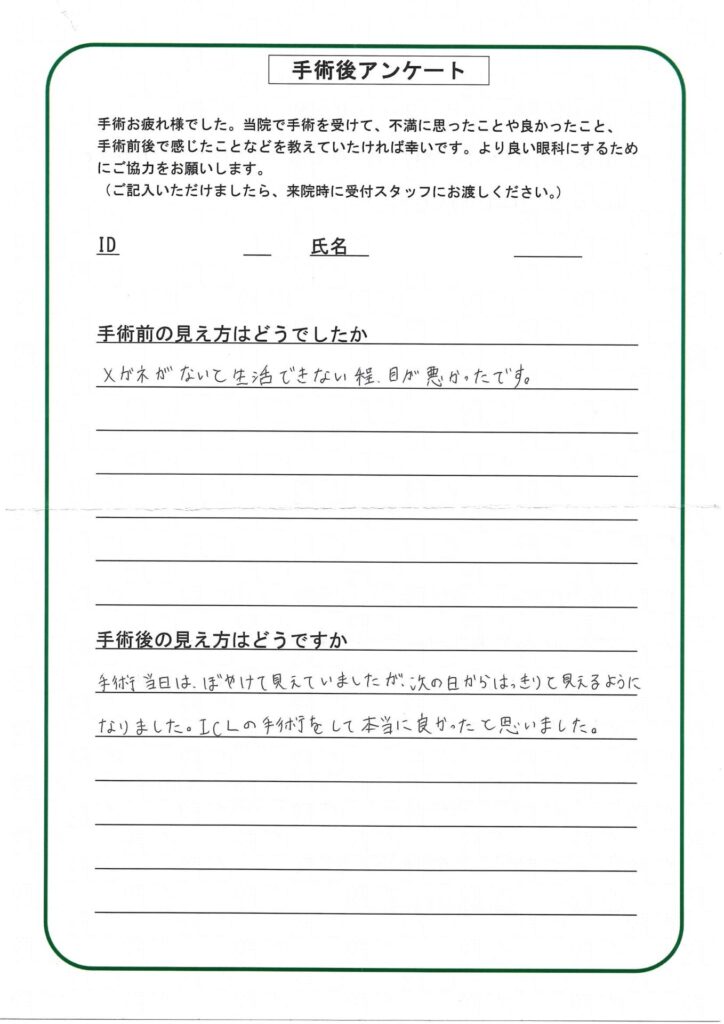 手術後アンケート
手術お疲れ様でした。当院で手術を受けて、不満に思ったことや良かったこと、
手術前後で感じたことなどを教えていたければ幸いです。より良い眼科にするため
にご協力をお願いします。
（ご記入いただけましたら、来院時に受付スタッフにお渡しください。）
ID 氏名
手術前の見え方はどうでしたか
メガネがないと生活できない程、目が悪かったです。
手術後の見え方はどうですか
手術当日は、ぼやけて見えていましたが、次の日からはっきりと見えるように
なりました。ICLの手術をして本当に良かったと思いました。